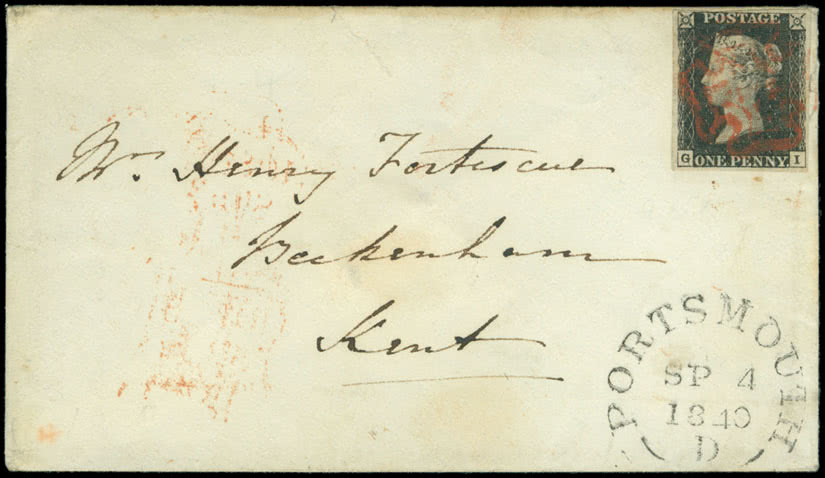 POSTAGE
G ONE PENNY I
Mrs Henry Fortescue
Beckenham
Kent
PORTSMOUTH
SP 4
1840
D